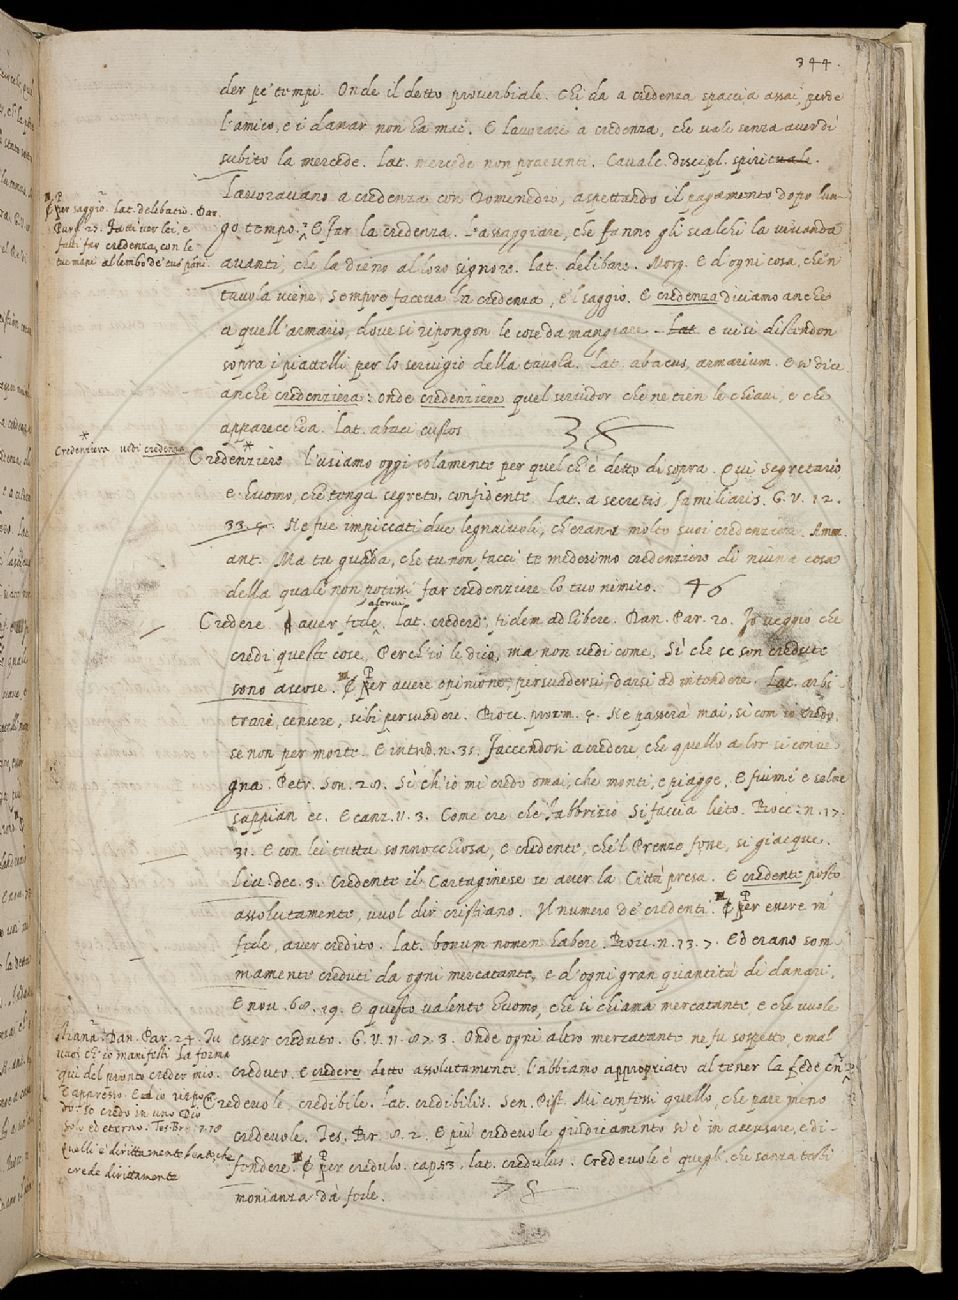 344.
der pe' tempi. Onde il detto proverbiale. Chi da a credenza spaccia assai, perde
l'amico, e i danar non ha mai. E lavorare a credenza, che vale senza aver di
subito la mercede. Lat. mercede non praesenti. Cavalc. discipl. spirituale.
Lavoravano a credenza con Domeneddio, aspettando il pagamento dopo lun-
go tempo. E far la credenza. L'assaggiare, che fanno gli scalchi la vivanda
avanti, che la dieno al loro signore. lat. delibare. Morg. E d'ogni cosa, che'n
tavola viene, Sempre faceva la credenza, e'l saggio. E credenza diciamo anche
a quell'armario, dove si ripongon le cose da mangiare. Lat. e vi si distendon
sopra i piattelli per lo servigio della tavola. Lat. abacus, armarium. E si dice
anche credenziera: onde credenziere quel servidor che ne tien le chiavi, e che
apparecchia. Lat. abaci custos
¶ per saggio. lat. delibatio. Dan.
Purg. 27. Fatti ver lei, e
fatti far credenza, con le
tue mani al lembo de' tuo' panni.
* Credenziera vedi credenza
Credenziere * l'usiamo oggi solamente per quel ch'è detto di sopra. Qui Segretario,
e huomo, che tenga segreto, confidente. Lat. a secretis, familiaris. G. V. 12.
Ne fue impiccati due legnaivoli, ch'erano molto suoi credenzieri. Amm.
ant. Ma tu guarda, che tu non facci te medesimo credenziere di niuna cosa
della quale non potresti far credenziere lo tuo nimico. 46
Credere aver fede. Lat. credere, fidem adhibere. Dan. Par. 20. Io veggio che
credi queste cose, Perch'io le dico, ma non vedi come, Sì che se son credute
sono ascose. ¶ per avere opinione, persuadersi, darsi ad intendere. Lat. arbi
trari, censere, sibi persuadere. Bocc. proem. Ne passerà mai, sì com'io credo,
se non per morte. E introd. n. 35. Faccendosi a credere, che quello a lor si conve
gna. Petr. Son. 28. Sì ch'io mi credo omai, che monti, e piagge, E fiumi e selve
sappian ec. E canz. 11. 3. Come cre che Fabbrizio Si faccia lieto. Bocc. n. 17.
31. E con lei tutta sonnocchiosa, e credente, che'l Prenze fosse, si giacque.
Liv. dec. 3. Credente il Cartaginese se aver la Città presa. E credente posto
assolutamente, vuol dir cristiano. Il numero de' credenti. ¶ per essere in
fede, aver credito. Lat. bonum nomen habere. Bocc. n. 13. 7. Ed erano som
mamente creduti da ogni mercatante, e d'ogni gran quantità di danari.
E questo valente huomo, che si chiama mercatante, e che vuole
esser creduto. G. V. 11. 87. 3. Onde ogni altro mercatante ne fu sospetto, e mal
creduto. E credere detto assolutamente, l'abbiamo appropriato al tener la fede
Dan. Par. 24. Tu
vuoi ch'io manifesti la forma
qui del pronto creder mio.
E appresso. Ed io rispon
do: Io credo in uno Dio
Solo ed eterno. Tes. Br.
Quelli è dirittamente beato, che
crede dirittamente
Credevole credibile. Lat. credibilis. Sen. Pist. Mi confessi quello, che pare meno
credevole. Tes. Br. 8. 2. E più credevole giudicamento si è in accusare, e di-
fendere. ¶ per credulo. lat. credulus. Credevole è quegli, che sanza testi
monianza dà fede.